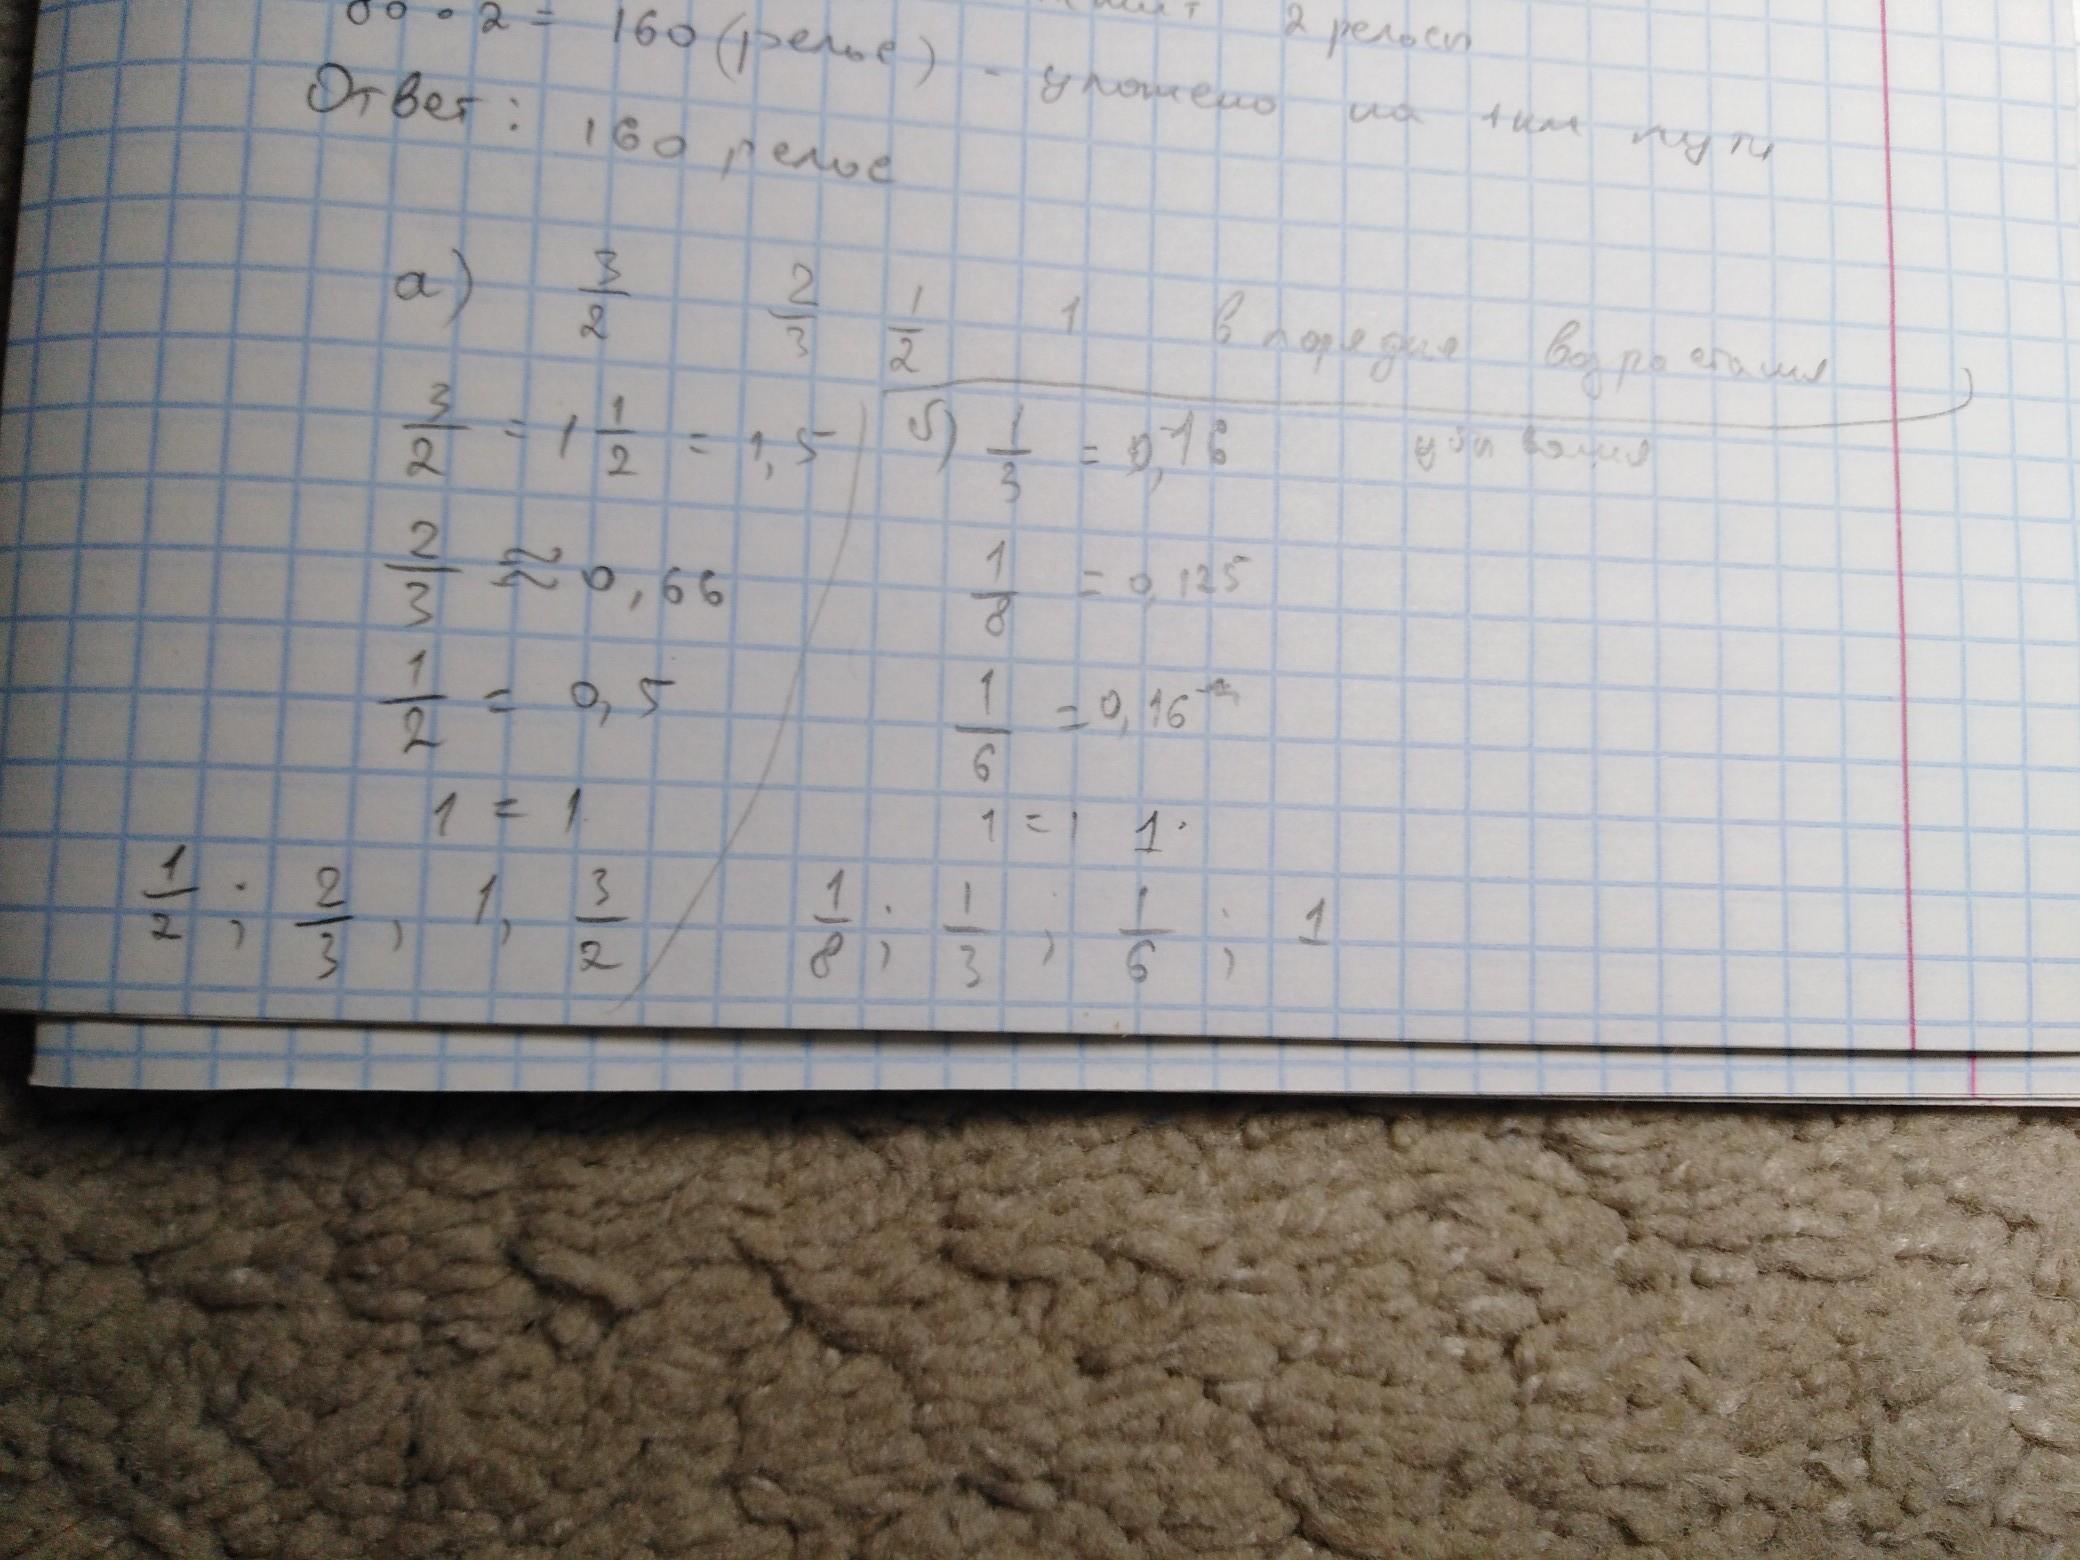 80 · 2 = 160 (рельс) - уложено на 1 км пути
2 рельсы
Ответ: 160 рельс
а) 3/2 2/3 1/2 1 в порядке возрастания
3/2 = 1 1/2 = 1,5
2/3 ≈ 0,66
1/2 = 0,5
1 = 1
1/2; 2/3, 1, 3/2
б) 1/3 = 0,16 убывания
1/8 = 0,125
1/6 = 0,16
1 = 1 1.
1/8; 1/3; 1/6; 1